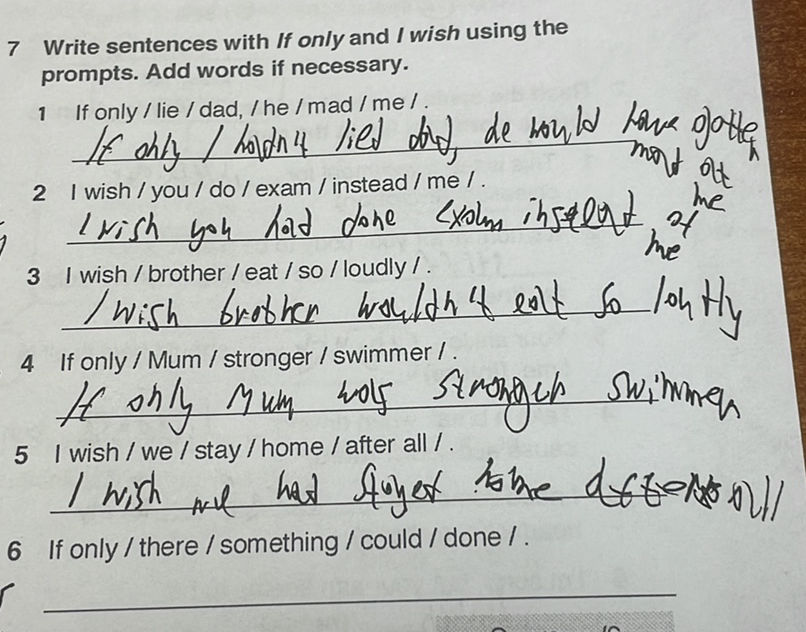 7 Write sentences with If only and I wish using the
prompts. Add words if necessary.
1 If only / lie / dad, / he / mad / me / .
If only I hadn't lied dad, he would have gotten
mad at
me
2 I wish / you / do / exam / instead / me / .
I wish you had done exam instead of
me
3 I wish / brother / eat / so / loudly / .
I wish brother wouldn't eat so
4 If only / Mum / stronger / swimmer / .
If only Mum was stronger swimmer
5 I wish / we / stay / home / after all / .
I wish we had stayed home after all
6 If only / there / something / could / done / .